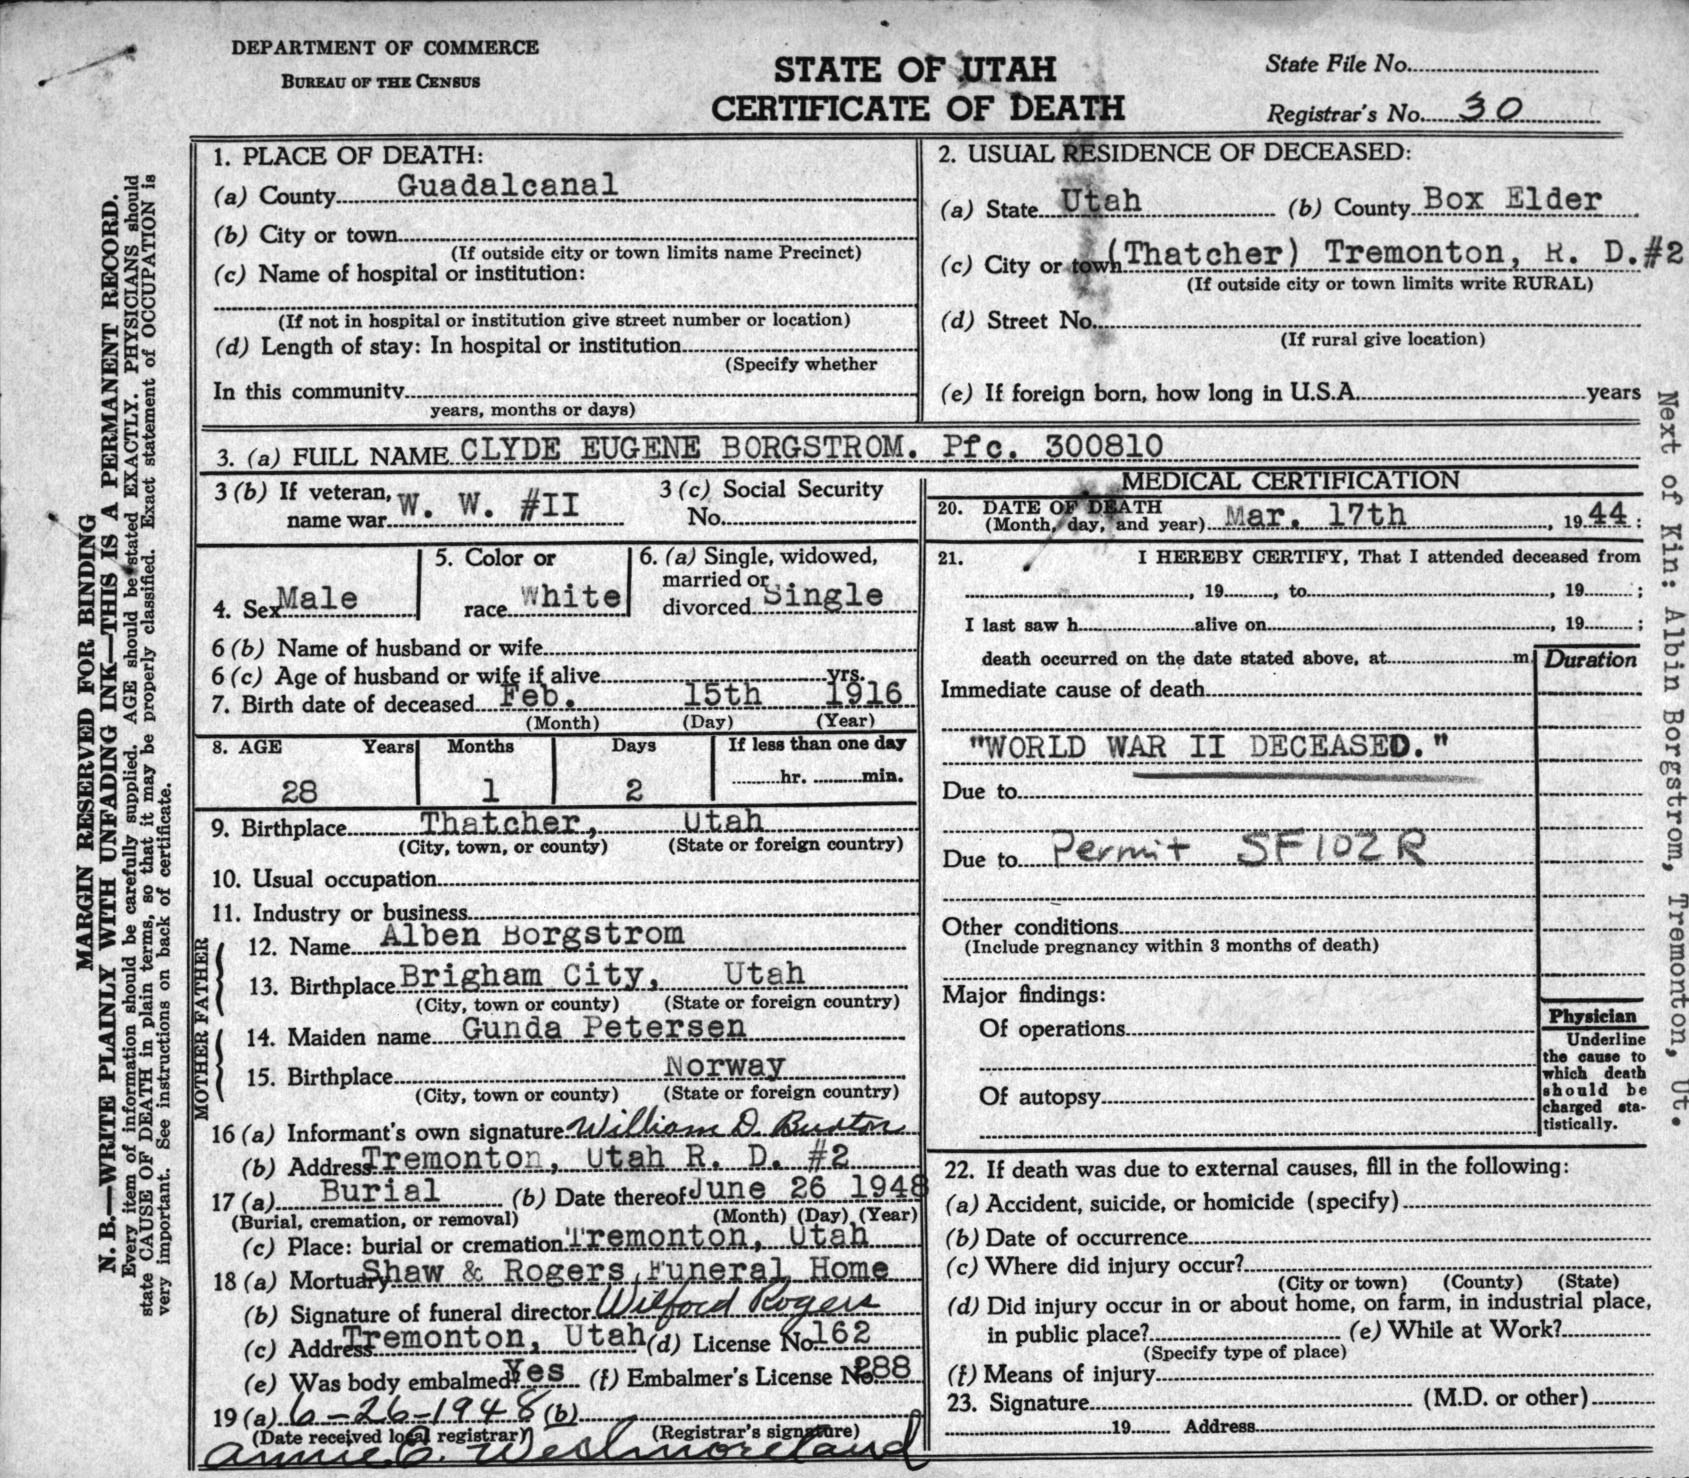 DEPARTMENT OF COMMERCE
BUREAU OF THE CENSUS
STATE OF UTAH
CERTIFICATE OF DEATH
State File No.
Registrar's No. 30
1. PLACE OF DEATH:
(a) County Guadalcanal
(b) City or town
(If outside city or town limits name Precinct)
(c) Name of hospital or institution:
(If not in hospital or institution give street number or location)
(d) Length of stay: In hospital or institution
(Specify whether
In this community
years, months or days)
2. USUAL RESIDENCE OF DECEASED:
(a) State Utah (b) County Box Elder
(c) City or town (Thatcher) Tremonton, R. D.#2
(If outside city or town limits write RURAL)
(d) Street No.
(If rural give location)
(e) If foreign born, how long in U.S.A. years
3. (a) FULL NAME CLYDE EUGENE BORGSTROM. Pfc. 300810
3 (b) If veteran,
name war W. W. #II
3 (c) Social Security
No.
4. Sex Male
5. Color or
race White
6. (a) Single, widowed,
married or
divorced Single
6 (b) Name of husband or wife
6 (c) Age of husband or wife if alive yrs.
7. Birth date of deceased Feb. 15th 1916
(Month) (Day) (Year)
8. AGE Years Months Days If less than one day
28 1 2 hr. min.
9. Birthplace Thatcher, Utah
(City, town, or county) (State or foreign country)
10. Usual occupation
11. Industry or business
FATHER
12. Name Alben Borgstrom
13. Birthplace Brigham City, Utah
(City, town or county) (State or foreign country)
MOTHER
14. Maiden name Gunda Petersen
15. Birthplace Norway
(City, town or county) (State or foreign country)
16 (a) Informant's own signature William D. Buxton
(b) Address Tremonton, Utah R. D. #2
17 (a) Burial (b) Date thereof June 26 1948
(Burial, cremation, or removal) (Month) (Day) (Year)
(c) Place: burial or cremation Tremonton, Utah
18 (a) Mortuary Shaw & Rogers Funeral Home
(b) Signature of funeral director Wilford Rogers
(c) Address Tremonton, Utah (d) License No. 162
(e) Was body embalmed? Yes (f) Embalmer's License No. 288
19 (a) 6-26-1948 (b)
(Date received local registrar) (Registrar's signature)
Annie C. Westmoreland
MEDICAL CERTIFICATION
20. DATE OF DEATH
(Month, day, and year) Mar. 17th, 1944:
21. I HEREBY CERTIFY, That I attended deceased from
, 19 , to , 19 ;
I last saw h alive on , 19 ;
death occurred on the date stated above, at m.
Duration
Immediate cause of death
"WORLD WAR II DECEASED."
Due to
Due to Permit SF102R
Other conditions
(Include pregnancy within 3 months of death)
Major findings:
Of operations
Of autopsy
Physician
Underline
the cause to
which death
should be
charged sta-
tistically.
22. If death was due to external causes, fill in the following:
(a) Accident, suicide, or homicide (specify)
(b) Date of occurrence
(c) Where did injury occur?
(City or town) (County) (State)
(d) Did injury occur in or about home, on farm, in industrial place,
in public place? (e) While at Work?
(Specify type of place)
(f) Means of injury
23. Signature (M.D. or other)
19 Address
MARGIN RESERVED FOR BINDING
N. B.—WRITE PLAINLY WITH UNFADING INK—THIS IS A PERMANENT RECORD.
Every item of information should be carefully supplied. AGE should be stated EXACTLY. PHYSICIANS should
state CAUSE OF DEATH in plain terms, so that it may be properly classified. Exact statement of OCCUPATION is
very important. See instructions on back of certificate.
Next of Kin: Albin Borgstrom, Tremonton, Ut.